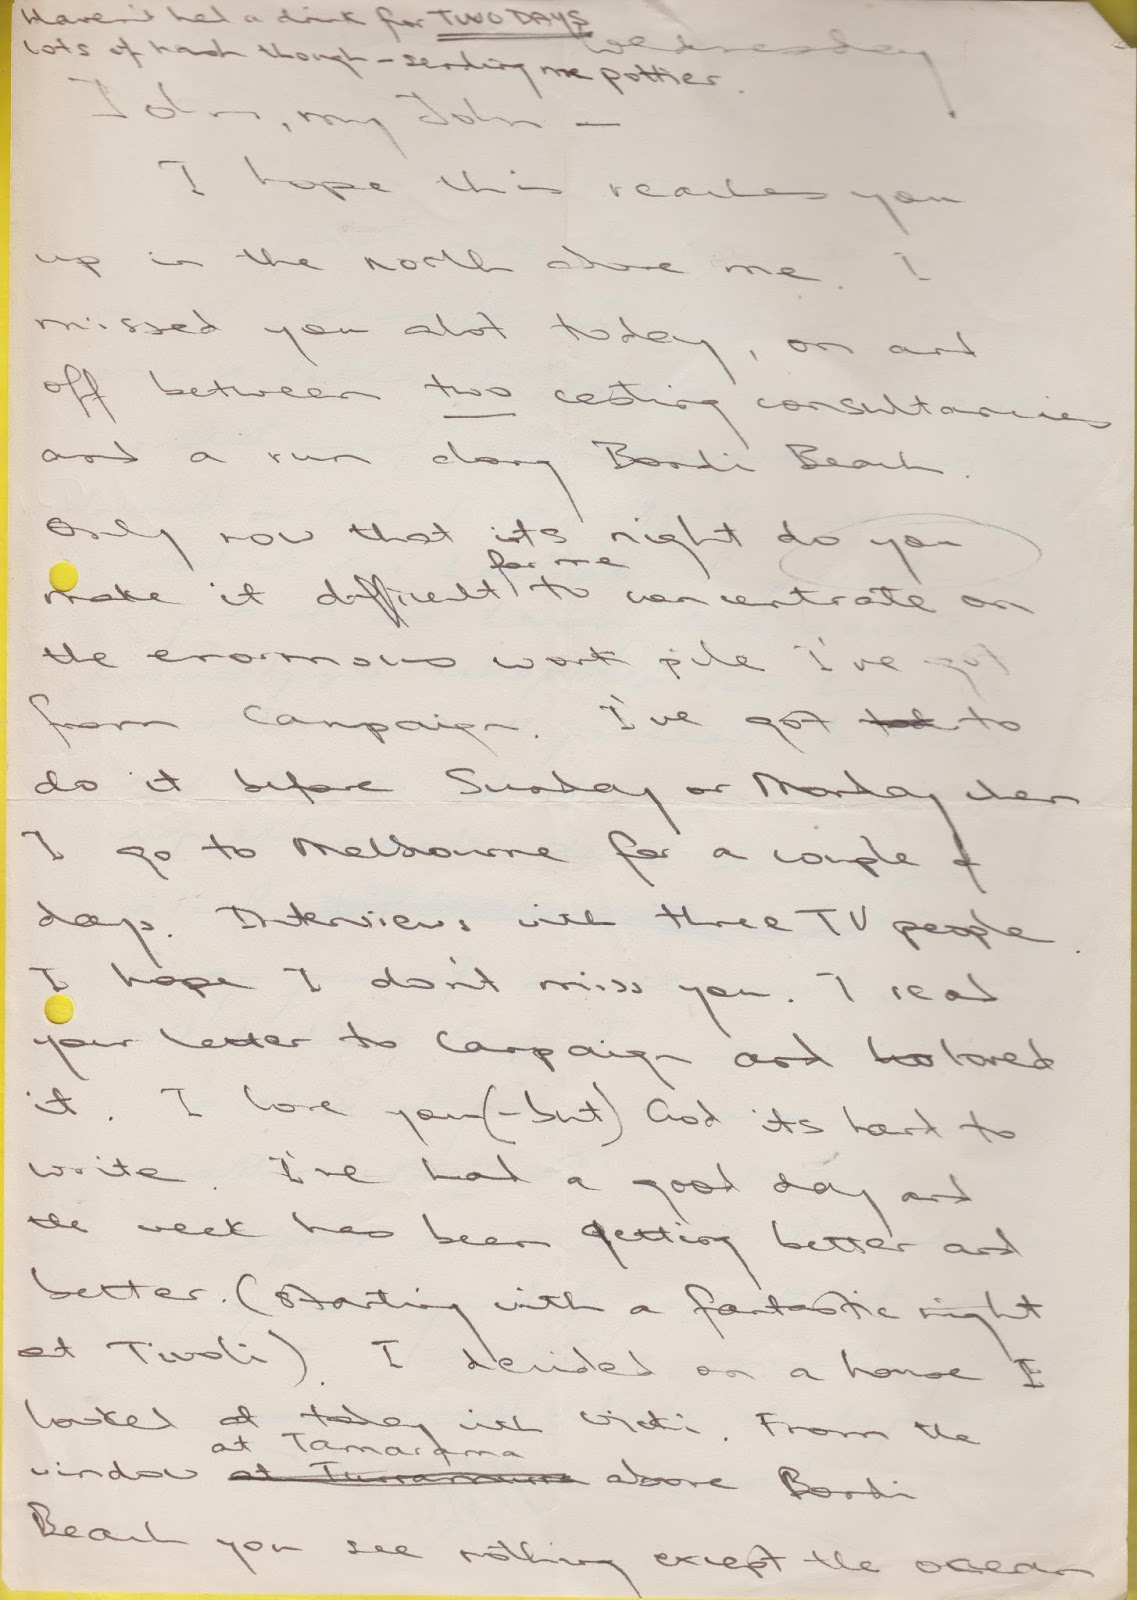 Haven't had a drink for TWO DAYS
lots of hash though - sending me pottier.
Wednesday
John, my John —
I hope this reaches you
up in the north above me. I
missed you alot today, on and
off between two casting consultancies
and a run along Bondi Beach.
Only now that its night do you
for me
make it difficult to concentrate on
the enormous work pile I've got
from Campaign. I've got to
do it before Sunday or Monday when
I go to Melbourne for a couple of
days. Interviews with three TV people.
I hope I don't miss you. I read
your letter to Campaign and loved
it. I love you (-but) God its hard to
write. I've had a good day and
the week has been getting better and
better. (Starting with a fantastic night
at Tivoli). I decided on a house I
looked at today with Vicki. From the
at Tamarama
window at Turramurra above Bondi
Beach you see nothing except the ocean